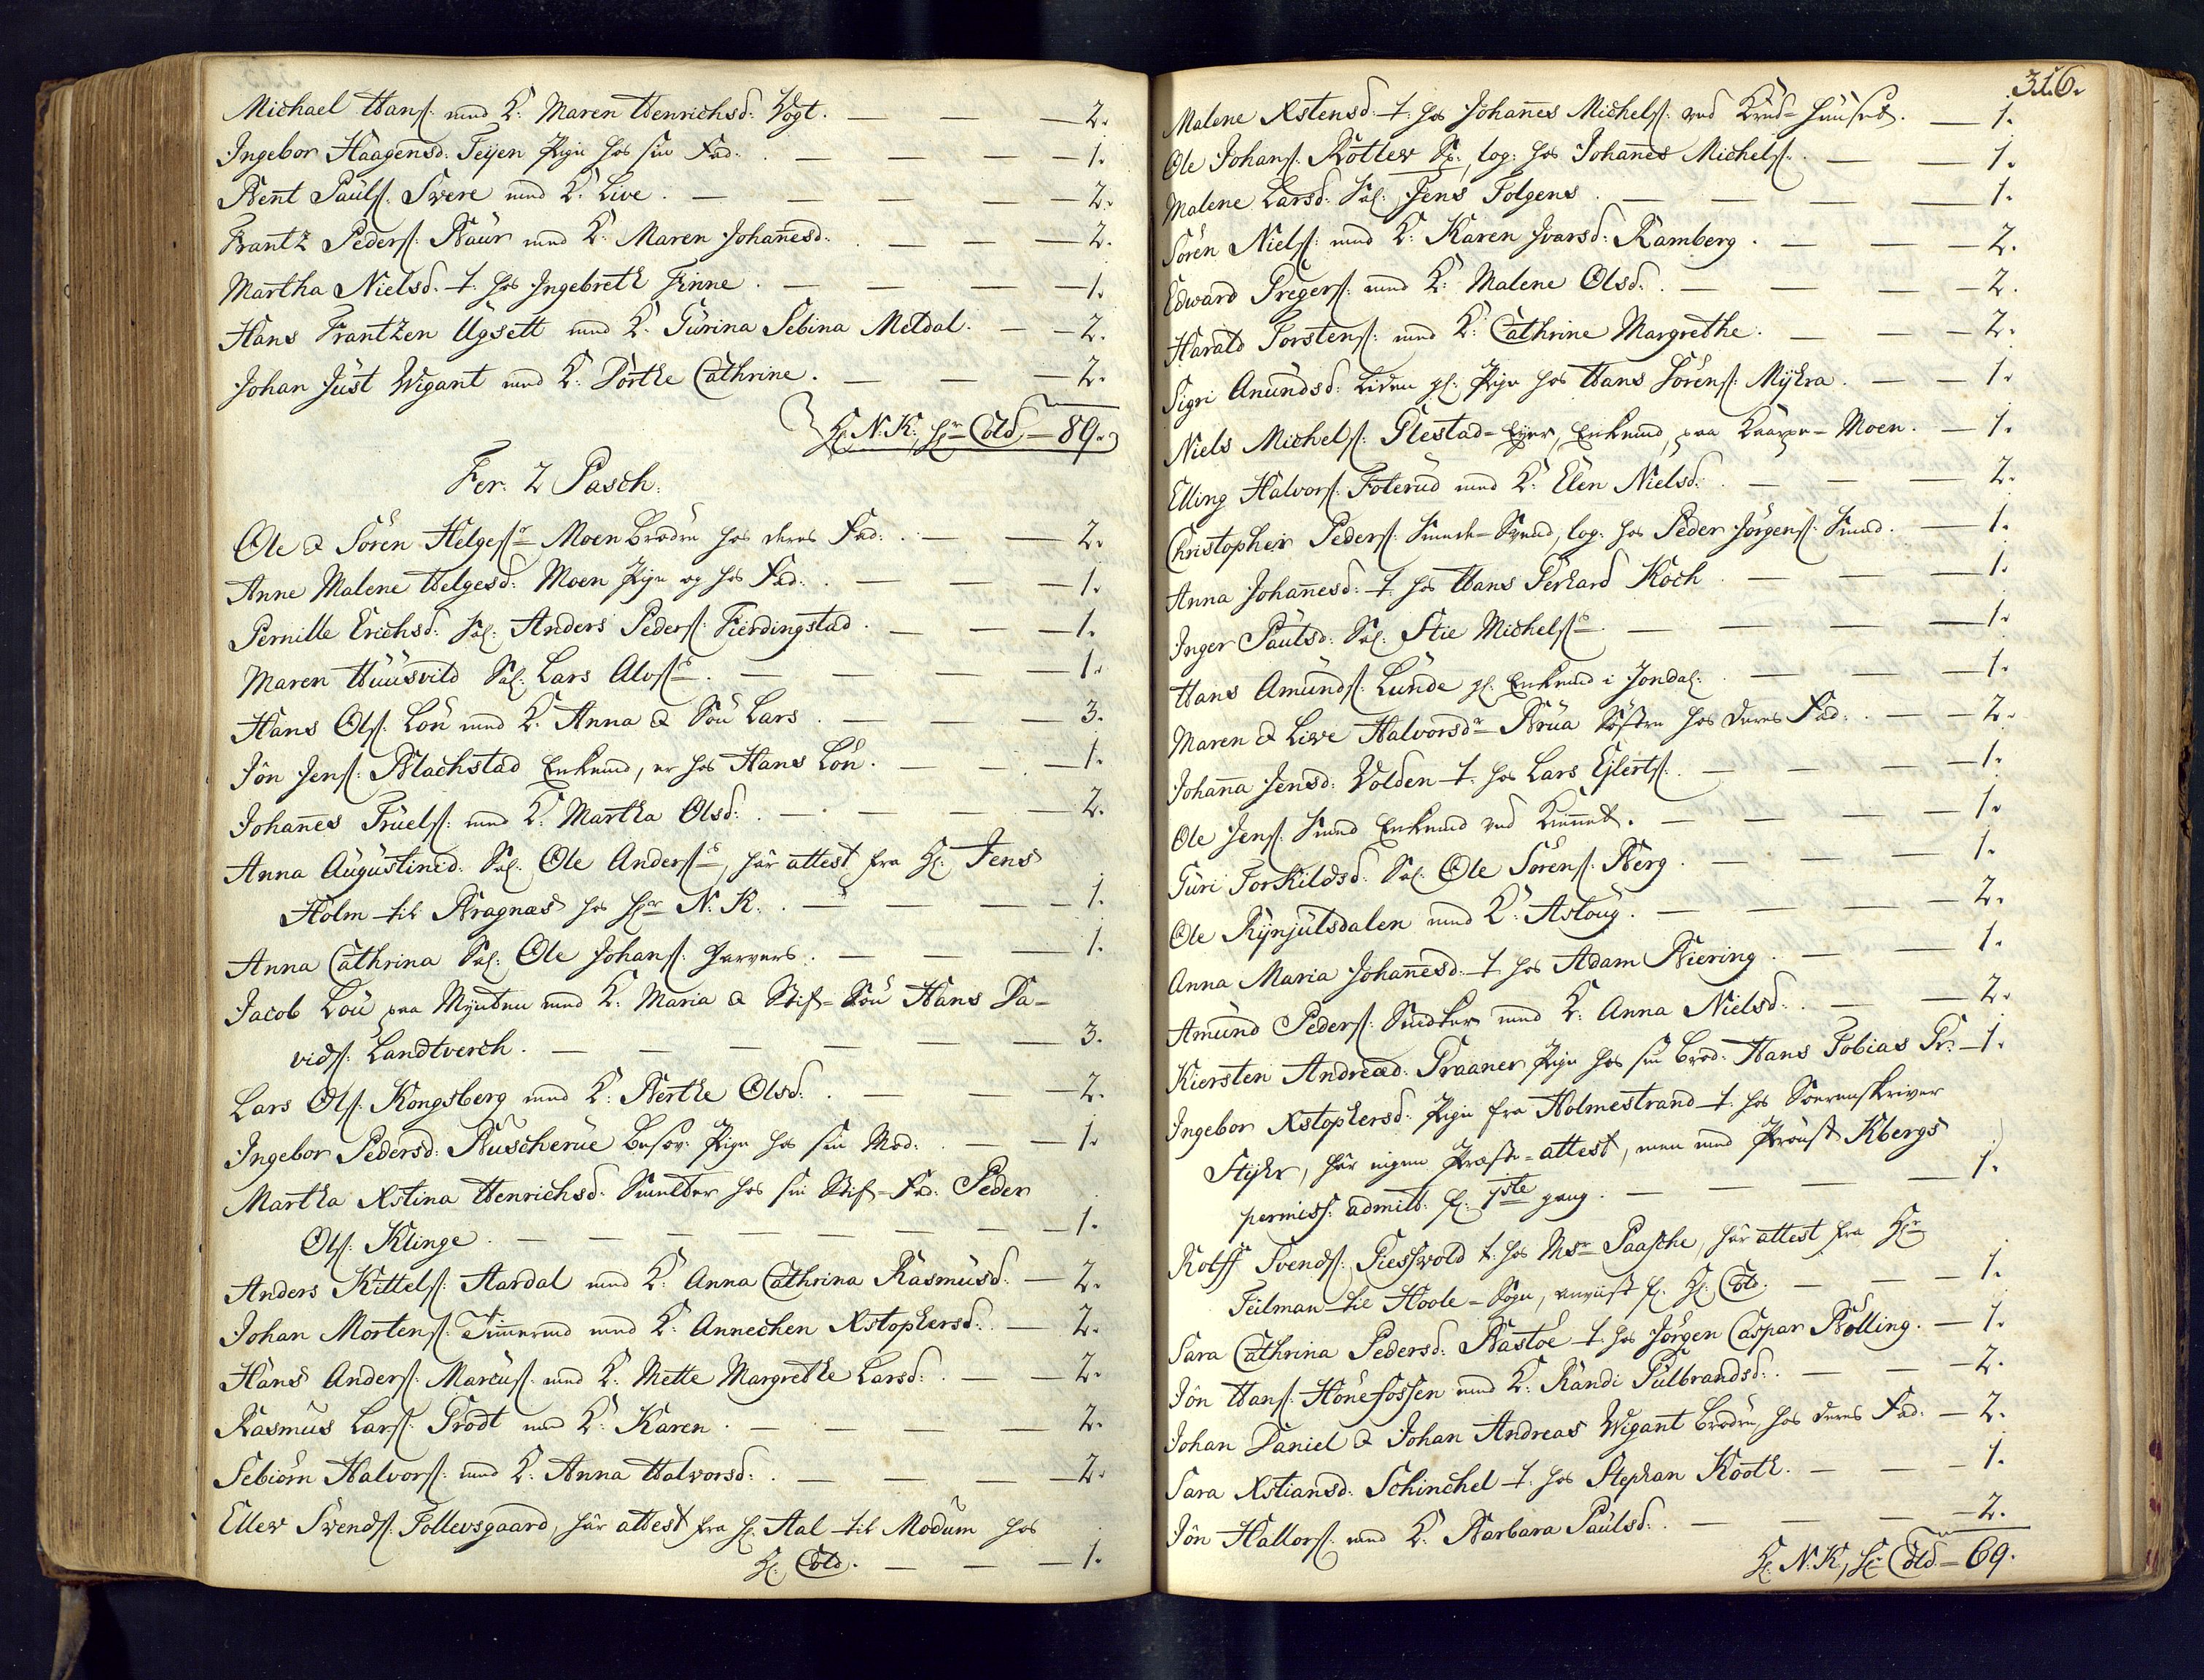 Michael Hansſ: med K: Maren Henrichsd: Vogt. — — — 2.
Ingebor Haagensd: Teijen Pige hos sin Fad: . — — — — 1.
Bent Paulſ: Svere med K: Live. — — — — — 2.
Frantz Pederſ: Baur med K: Maren Johañesd: . — — — 2.
Martha Nielsd: t. hos Ingebreth Finne. — — — — 1.
Hans Frantzen Ugsett med K: Gurina Sebina Meldal. — — 2.
Johan Just Wigant med K: Dorthe Cathrine. — — — 2.
H: N: K:, Hr Cold — 89.
Fer. 2 Pasch:
Ole & Sören Helgeſr Moen Brødre hos deres Fad: . — — 2.
Anne Malene Helgesd: Moen Pige og hos Fad: . — — — 1.
Pernille Erichsd: Sal: Anders Pederſ: Fierdingstad. — — — 1.
Maren Huusvild Sal: Lars Alvſs. — — — — — 1.
Hans Olſ: Löu med K: Anna & Sön Lars. — — — 3.
Jön Jenſ: Blachstad Enkemd, er hos Hans Löu. — — — 1.
Johañes Truelſ: med K: Martha Olsd: . — — — — 2.
Anna Augustined: Sal: Ole Anderſs, har attest fra H: Jens
Holm til Bragnæs hos Hr N: K: . — — — — 1.
Anna Cathrina Sal: Ole Johanſ: Harvers. — — — 1.
Jacob Löu paa Mynten med K: Maria & Stif-Sön Hans Da-
vidſ: Landtverch. — — — — — — 3.
Lars Olſ: Kongsberg med K: Berthe Olsd: . — — — 2.
Ingebor Pedersd: Buscherue besov: Pige hos sin Mod: . — — 1.
Martha Xstina Henrichsd: Smelter hos sin Stif-Fad: Peder
Olſ: Klinge. — — — — — — — 1.
Anders Kittelſ: Aardal med K: Anna Cathrina Rasmusd: — 2.
Johan Mortenſ: Timermd med K: Annechen Xstophersd: . — 2.
Hans Anderſ: Marcusſ: med K: Mette Margrethe Larsd: . — — 2.
Rasmus Larſ: Brodt med K: Karen. — — — — — 2.
Sebiörn Halvorſ: med K: Anna Halvorsd: . — — — — 2.
Ellev Svendſ: Tollevsgaard, har attest fra H: Aal til Modum hos
H: Cold. — — — 1.
316.
Malene Xstensd: t. hos Johañes Michelſ: ved Krud-Huuset. — 1.
Ole Johanſ: Rotlew Sp:, log: hos Johañes Michelſ: . — — 1.
Malene Larsd: Sal: Jens Holgens. — — — — — 1.
Sören Nielſ: med K: Karen Ivarsd: Ramberg. — — — 2.
Edward Gregerſ: med K: Malene Olsd: . — — — — 2.
Harald Torstenſ: med K: Cathrine Margrethe. — — — 2.
Sigri Anundsd: Liden gl: Pige hos Hans Sörenſ: Myhra. — — 1.
Niels Michelſ: Glestad-Eyer, Enkemd, paa Kaarpe-Moen. — 1.
Elling Halvorſ: Foterud med K: Elen Nielsd: . — — — 2.
Christopher Pederſ: Smede-Svend, log: hos Peder Jörgenſ: Smed. — 1.
Anna Johañesd: t. hos Hans Gerhard Koch. — — — 1.
Inger Paulsd: Sal: Stie Michelſs. — — — — — 1.
Hans Amundſ: Lunde gl: Enkemd i Jondal. — — — 1.
Maren & Live Halvorsdr Brua Söstre hos deres Fad: . — — 2.
Johaña Jensd: Volden t. hos Lars Ejlertſ: . — — — — 1.
Ole Jenſ: Smed Enkemd ved Kinnet. — — — — 1.
Guri Torkildsd: Sal: Ole Sörenſ: Berg. — — — — 1.
Ole Rynjulsdalen med K: Aslaug. — — — — — 2.
Anna Maria Johañesd: t. hos Adam Biering. — — — 1.
Amund Pederſ: Snedker med K: Anna Nielsd: . — — — 2.
Kiersten Andread: Graaner Pige hos sin Brod: Hans Tobias Gr: — 1.
Ingebor Xstophersd: Pige fra Holmestrand t. hos Sorenskriver
Styhr, har ingen Præste-attest, men med Proust Kbergs
permisſ: admitt: p: 1ste gang. — — — — — 1.
Rolff Svendſ: Giessvold t. hos Msr Paasche, har attest fra Hr
Teilman til Hoole-Sogn, anviist f: H: Cold. — — — 1.
Sara Cathrina Pedersd: Bastöe t. hos Jörgen Caspar Bölling. — 1.
Jön Hanſ: Hönefossen med K: Randi Gulbrandsd: . — — — 2.
Johan Daniel & Johan Andreas Wigant Brødre, hos deres Fad: — 2.
Sara Xstiansd: Schinchel t. hos Stephan Kooth. — — — 1.
Jön Hallorſ: med K: Barbara Paulsd: . — — — — 2.
H: N: K:, Hr Cold. — 69.